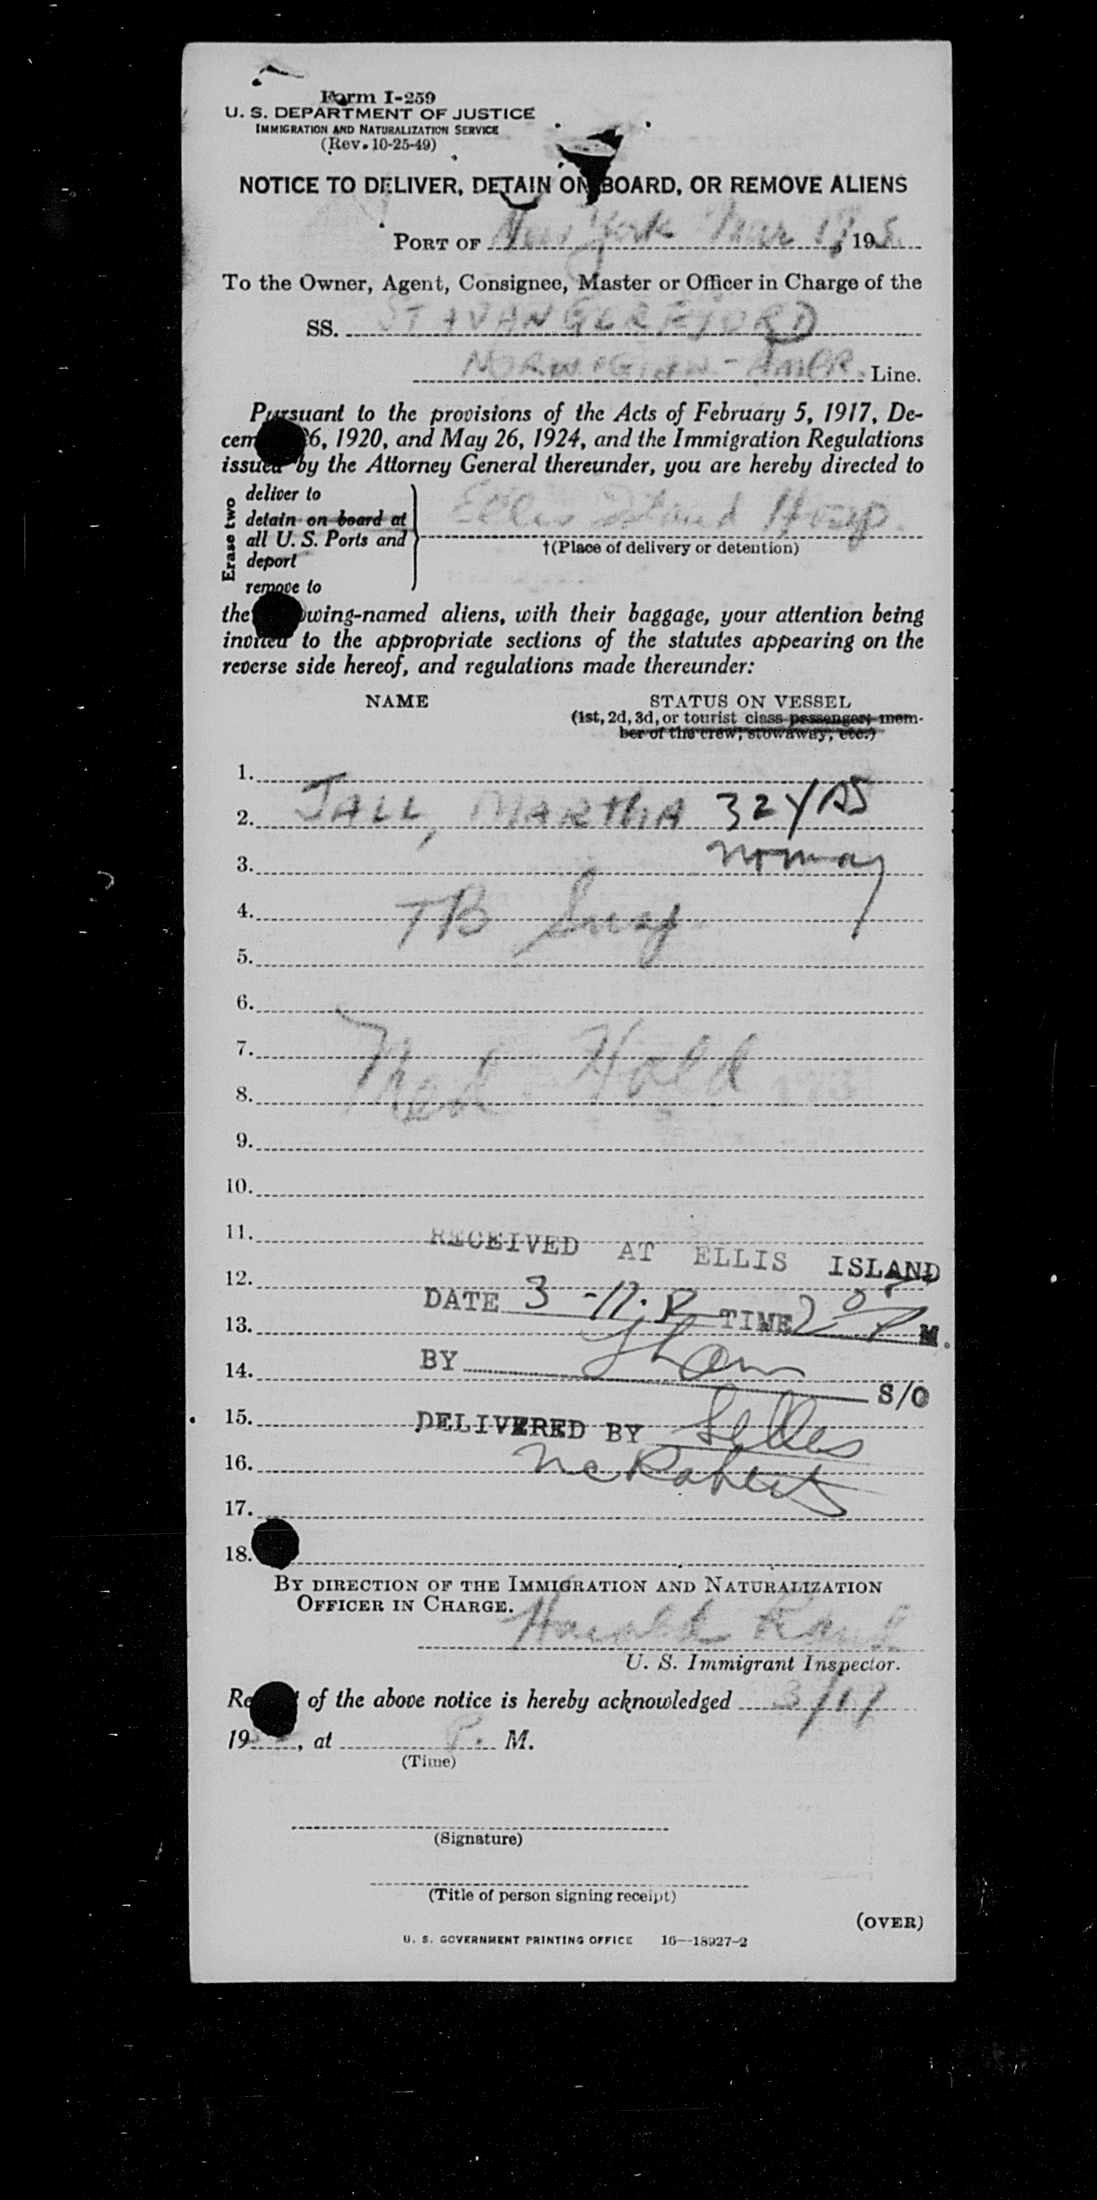 Form I-259
U. S. DEPARTMENT OF JUSTICE
IMMIGRATION AND NATURALIZATION SERVICE
(Rev. 10-25-49)
NOTICE TO DELIVER, DETAIN ON BOARD, OR REMOVE ALIENS
PORT OF New York Mar 17, 195
To the Owner, Agent, Consignee, Master or Officer in Charge of the
SS. STAVANGERFJORD
NORWEGIAN-AMER. Line.
Pursuant to the provisions of the Acts of February 5, 1917, De-
cem 6, 1920, and May 26, 1924, and the Immigration Regulations
issued by the Attorney General thereunder, you are hereby directed to
Erase two
deliver to
detain on board at
all U. S. Ports and
deport
remove to
Ellis Island Hosp.
†(Place of delivery or detention)
the owing-named aliens, with their baggage, your attention being
invited to the appropriate sections of the statutes appearing on the
reverse side hereof, and regulations made thereunder:
NAME STATUS ON VESSEL
(1st, 2d, 3d, or tourist class passenger; mem-
ber of the crew; stowaway, etc.)
1.
2. JALL, MARTHA 32 YRS
3. Norway
4. TB Susp.
5.
6.
7.
8. Med Hold
9.
10.
11. RECEIVED AT ELLIS ISLAND
12.
DATE 3-17- TIME M.
13.
BY
14. S/O
15. DELIVERED BY
16. McRoberts
17.
18.
BY DIRECTION OF THE IMMIGRATION AND NATURALIZATION
OFFICER IN CHARGE.
Harold
U. S. Immigrant Inspector.
Re of the above notice is hereby acknowledged 3/17
19 , at P. M.
(Time)
(Signature)
(Title of person signing receipt)
(OVER)
U. S. GOVERNMENT PRINTING OFFICE 16—18927-2